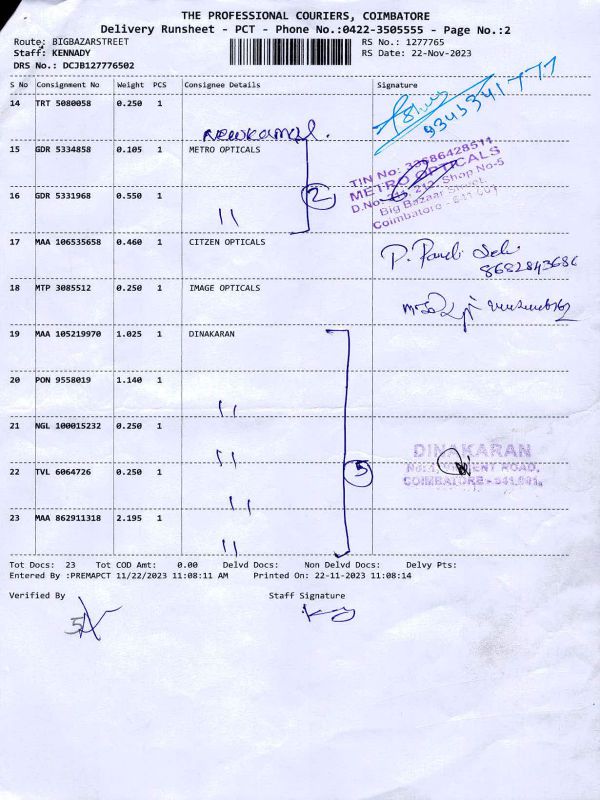 THE PROFESSIONAL COURIERS, COIMBATORE
Delivery Runsheet - PCT - Phone No.:0422-3505555 - Page No.:2
Route: BIGBAZARSTREET
RS No.: 1277765
Staff: KENNADY
RS Date: 22-Nov-2023
DRS No.: DCJB127776502
S No Consignment No Weight PCS Consignee Details Signature
14 TRT 5080058 0.250 1
9345341777
15 GDR 5334858 0.105 1 METRO OPTICALS
TIN No: 33686428511
METRO OPTICALS
Big Bazaar Street,
Coimbatore - 641 001
2
16 GDR 5331968 0.550 1
17 MAA 106535658 0.460 1 CITZEN OPTICALS
8682843686
18 MTP 3085512 0.250 1 IMAGE OPTICALS
19 MAA 105219970 1.025 1 DINAKARAN
20 PON 9558019 1.140 1
21 NGL 100015232 0.250 1
DINAKARAN
COIMBATORE - 641 001.
22 TVL 6064726 0.250 1
5
23 MAA 862911318 2.195 1
Tot Docs: 23 Tot COD Amt: 0.00 Delvd Docs: Non Delvd Docs: Delvy Pts:
Entered By :PREMAPCT 11/22/2023 11:08:11 AM Printed On: 22-11-2023 11:08:14
Verified By Staff Signature